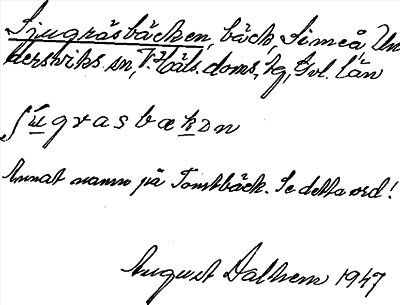 Sjugräsbäcken, bäck, Simeå, Un
dersviks sn, V. Häls. doms, sg, Gvl. län
ʃugrasbækɔn
Annat namn på Tomtbäck. Se detta ord!
August Dalhem 1947